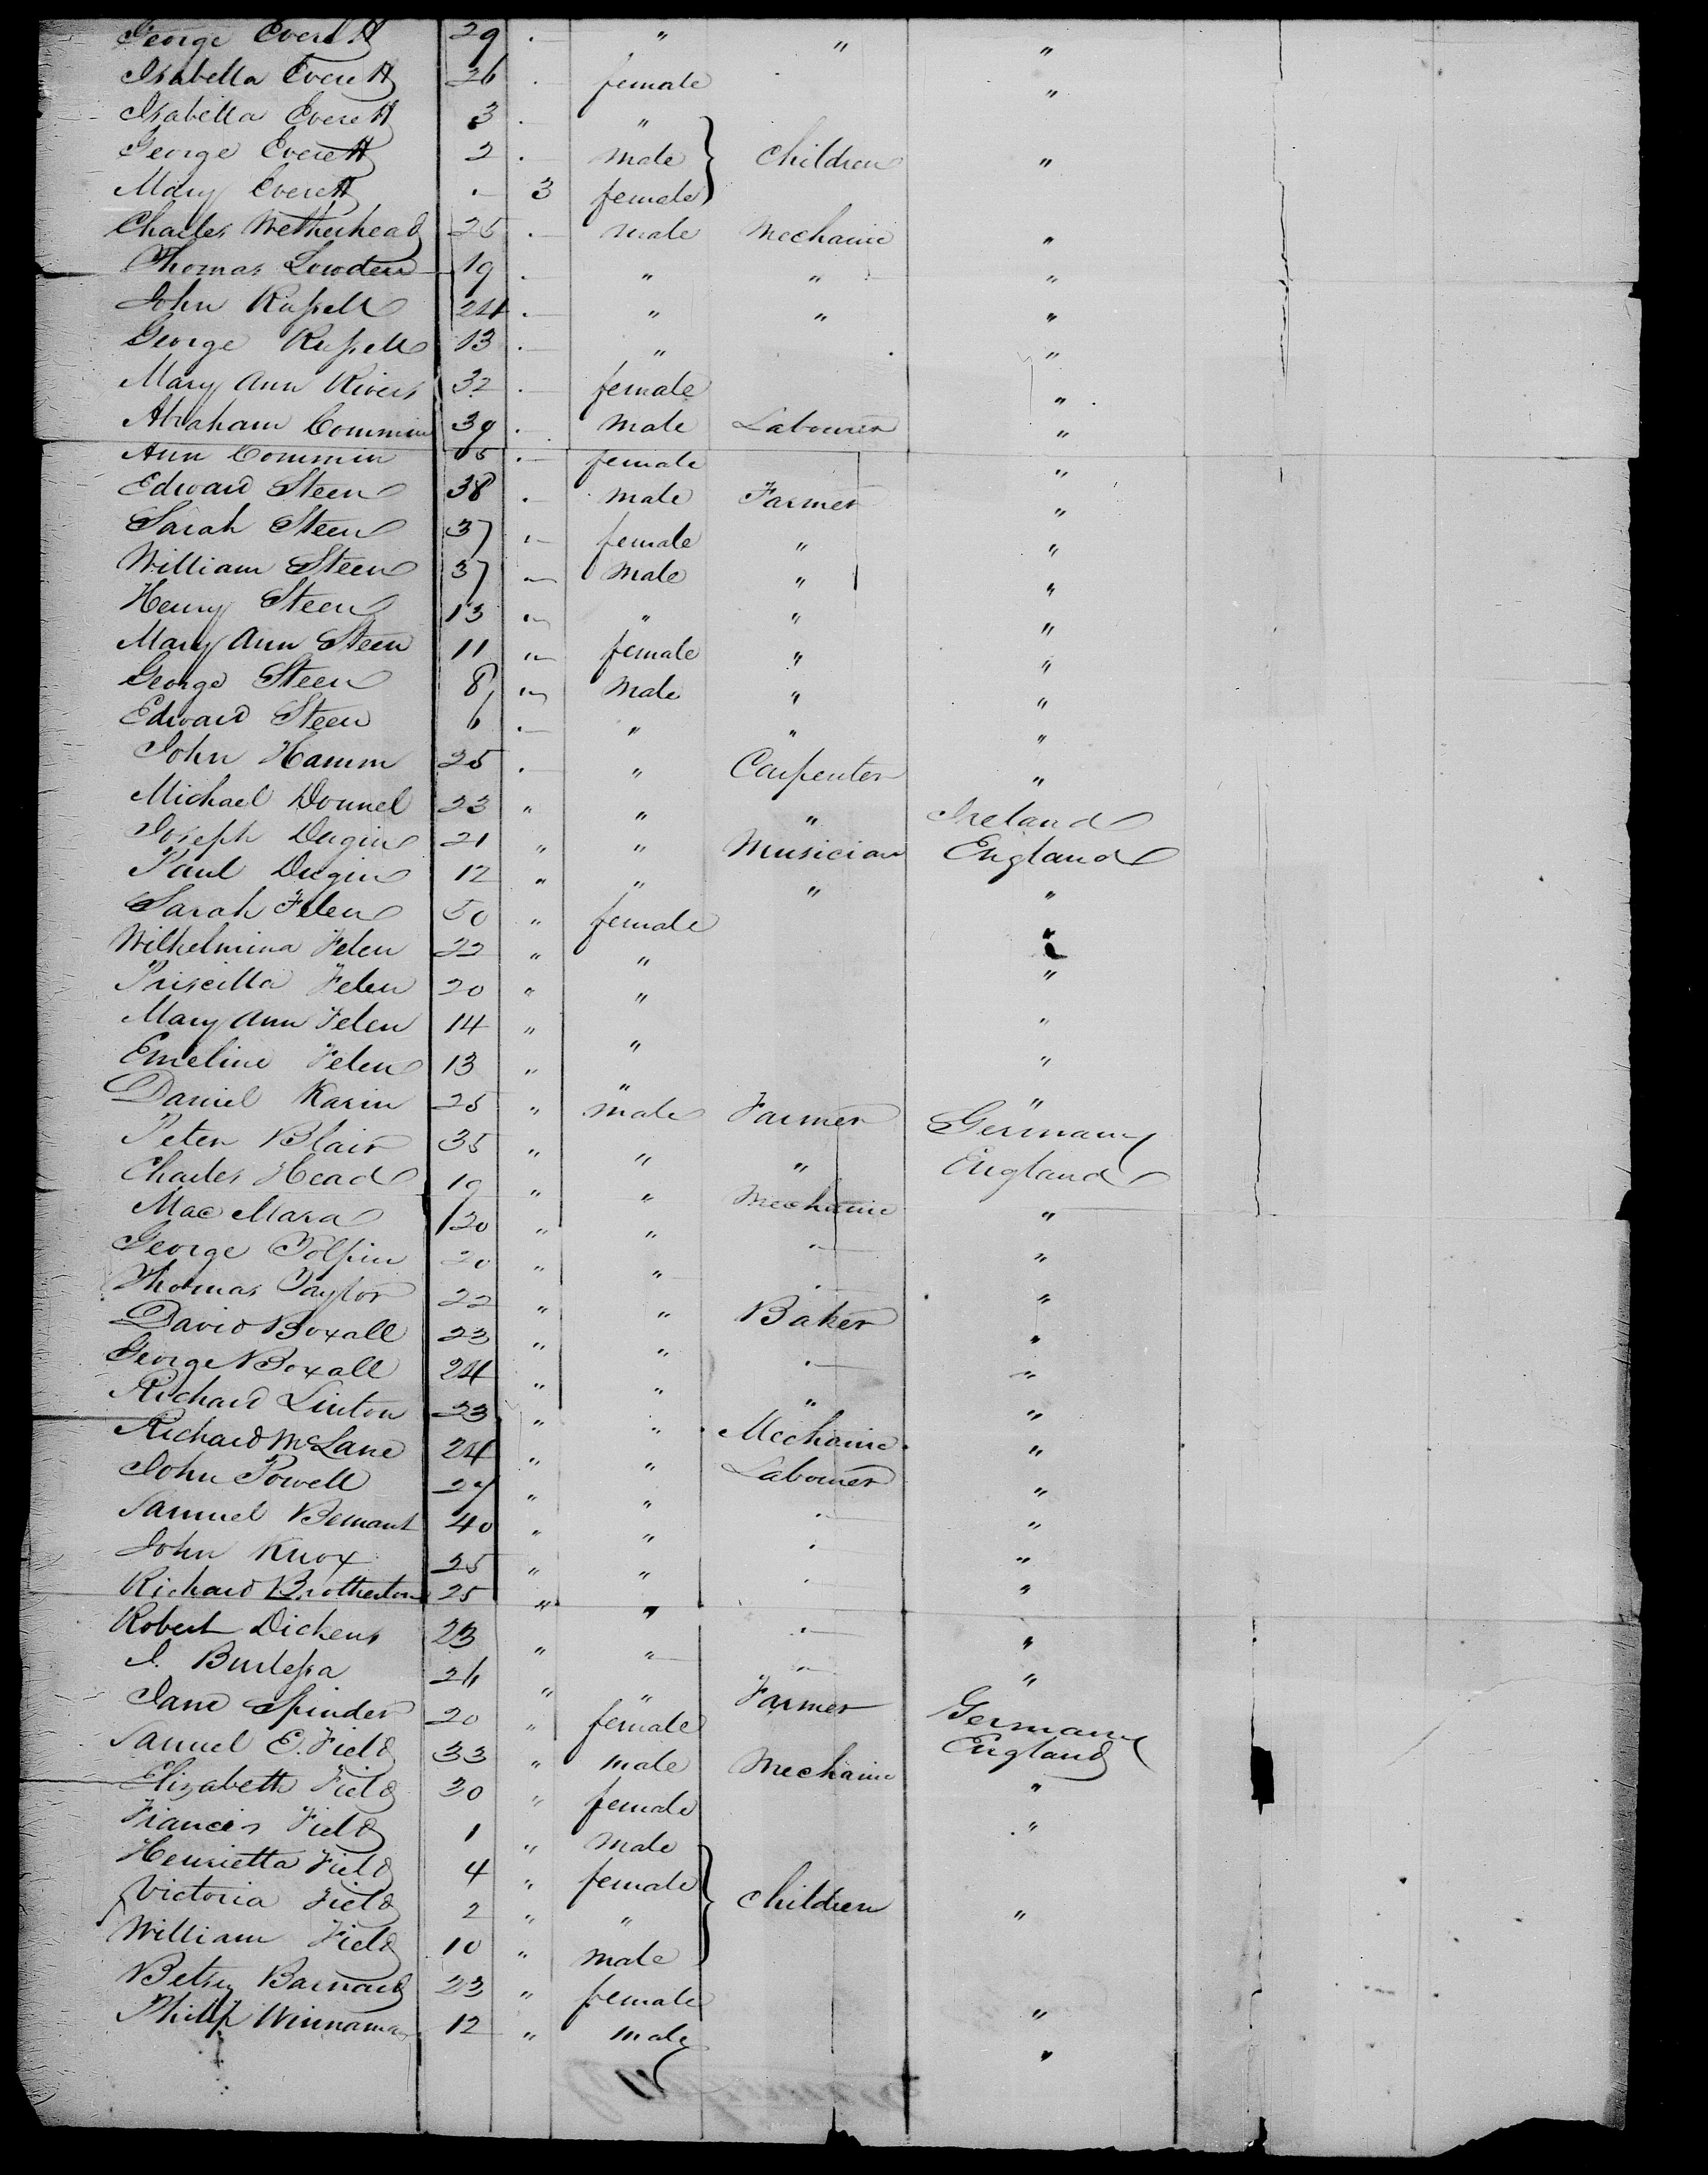 George Everett 29 . " " "
Isabella Everett 26 . female "
Isabella Everett 3 . "
George Everett 2 . male children "
Mary Everett . 3 female
Charles Wetherhead 25 . male Mechanic "
Thomas Lowden 19 . " " "
John Russell 24 . " " "
George Russell 13 . " "
Mary Ann Rivers 32 . female "
Abraham Commin 39 . male Labourer "
Ann Commin . female "
Edward Steen 38 . male Farmer "
Sarah Steen 37 " female " "
William Steen 37 " male " "
Henry Steen 13 " " " "
Mary Ann Steen 11 " female " "
George Steen 8 " male " "
Edward Steen 6 . " " "
John Hamm 25 . " Carpenter "
Michael Donnel 23 " " " Ireland
Joseph Dugin 21 " " Musician England
Paul Dugin 12 " " " "
Sarah Felen 50 " female "
Wilhelmina Felen 22 " " "
Priscilla Felen 20 " " "
Mary Ann Felen 14 " " "
Emeline Felen 13 " " "
Daniel Karin 25 " male Farmer Germany
Peter Blair 35 " " " England
Charles Head 19 " " Mechanic "
Mac Mara 20 " " " "
George Tolpin 20 " " " "
Thomas Taylor 22 " " Baker "
David Boxall 23 " " " "
George Boxall 24 " " " "
Richard Linton 23 " " Mechanic "
Richard McLane 24 " " Labourer "
John Powell 27 " " " "
Samuel Bemant 40 " " " "
John Knox 25 " " " "
Richard Brotherton 25 " " " "
Robert Dickens 23 " " " "
J. 26 " " Farmer Germany
Jane Spinder 20 " female England
Samuel E. Field 33 " male Mechanic "
Elizabeth Field 30 " female "
Francis Field 1 " male
Henrietta Field 4 " female children
Victoria Field 2 " " "
William Field 10 " male
Betsey Barnard 23 " female "
Philip 12 " male "